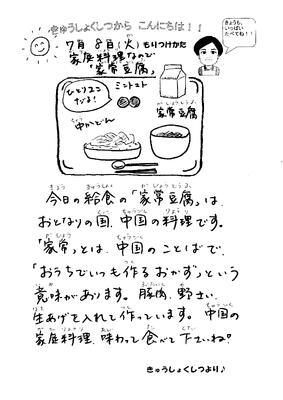 きゅうしょくしつから こんにちは!!
7月8日(火) もりつけかた
家庭料理なので
「家常豆腐」
きょうも、
いっぱい
たべてね!!
ひとり2コ
ずつ!
ミニトマト
中かどん
家常豆腐
今日の給食の「家常豆腐」は、
おとなりの国、中国の料理です。
「家常」とは、中国のことばで、
「おうちでいつも作るおかず」という
意味があります。豚肉、野さい、
生あげを入れて作っています。中国の
家庭料理、味わって食べて下さいね。
きゅうしょくしつより♪